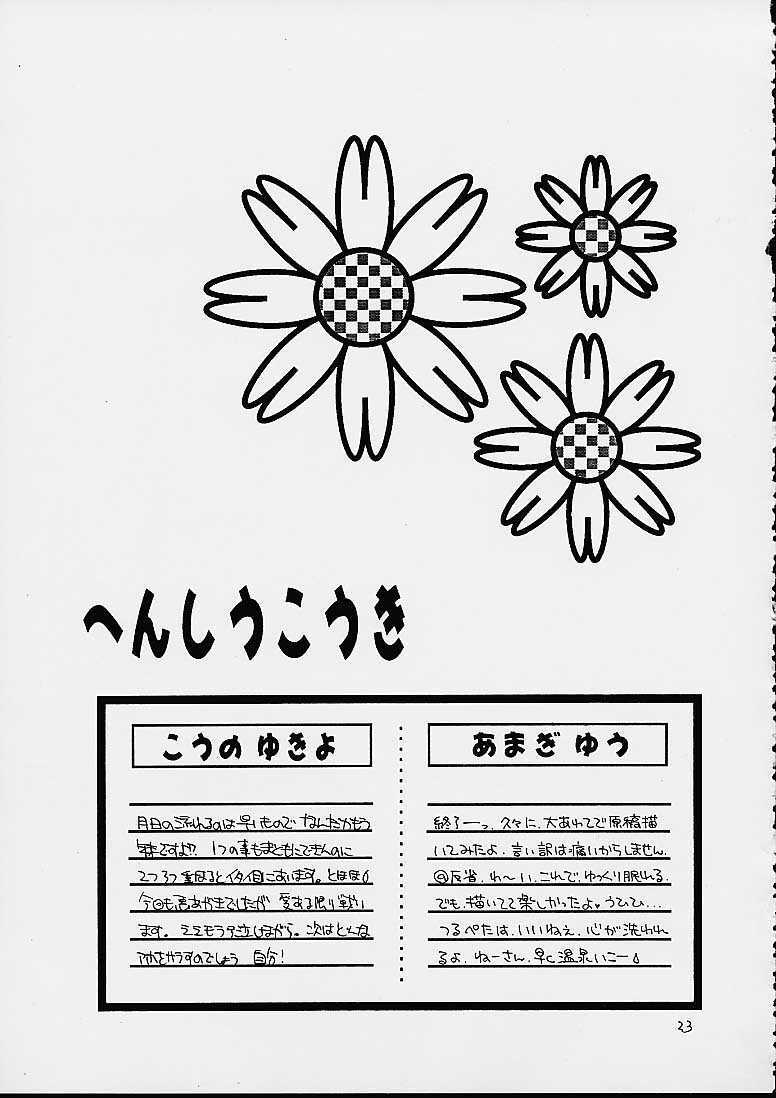 へんしうこうき
こうの ゆきよ
月日の流れるのは早いもので なんだかもう
ですよ!? 1つの事もまともにできんのに
2つ3つ重なるとイタイ目にあいます。とほほ
今回も悪あがきでしたが 愛ある限り戦い
ます。ミミモラで泣しながら。次はどんな
アホをやらかすのでしょう 自分!
あまぎ ゆう
終了ーっ。久々に、大あわてで原稿描
いてみたよ。言い訳は痛いからしません。
反省。わ〜い、これで、ゆっくり眠れる。
でも、描いてて楽しかったよ♥うひひ…
つるぺたは、いいねぇ、心が洗われ
るよ。ねーさん、早く温泉いこー
23